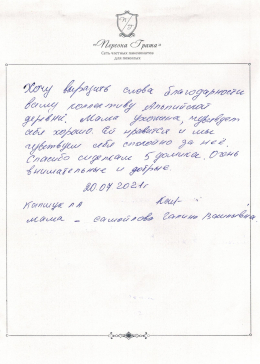 «Персона Грата»
Сеть частных пансионатов
для пожилых
Хочу выразить слова благодарности
вашу коллективу Альпийской
деревни. Мама ухожена, чувствует
себя хорошо. Ей нравится и мы
чувствуем себя спокойно за неё.
Спасибо сиделкам 5 домика. Очень
внимательные и добрые
20.07.2021г
Мама – Самойлова Галина